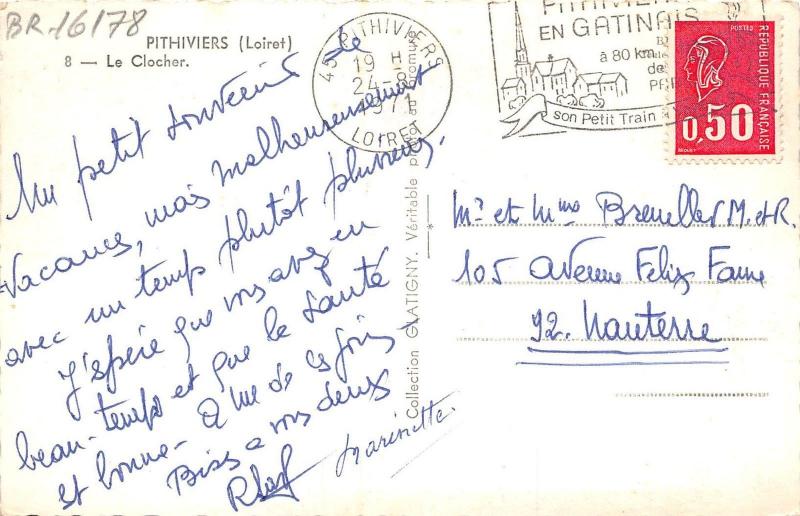 BR-16/178
PITHIVIERS (Loiret)
8 — Le Clocher.
45 PITHIVIERS
19 H
24-8
1971
LOIRET
PITHIVIERS
EN GATINAIS
à 80 km
de
son Petit Train
POSTES
RÉPUBLIQUE FRANÇAISE
0,50
Un petit souvenir de
vacances, mais malheureusement
avec un temps plutôt pluvieux.
J'espère que vous avez eu
beau-temps et que la santé
est bonne - A une de ces jours
Bises a vous deux
Marinette.
Collection GLATIGNY. Véritable photo au bromure
Mr et Mme M. et R.
105 avenue Felix Faure
92. Nanterre